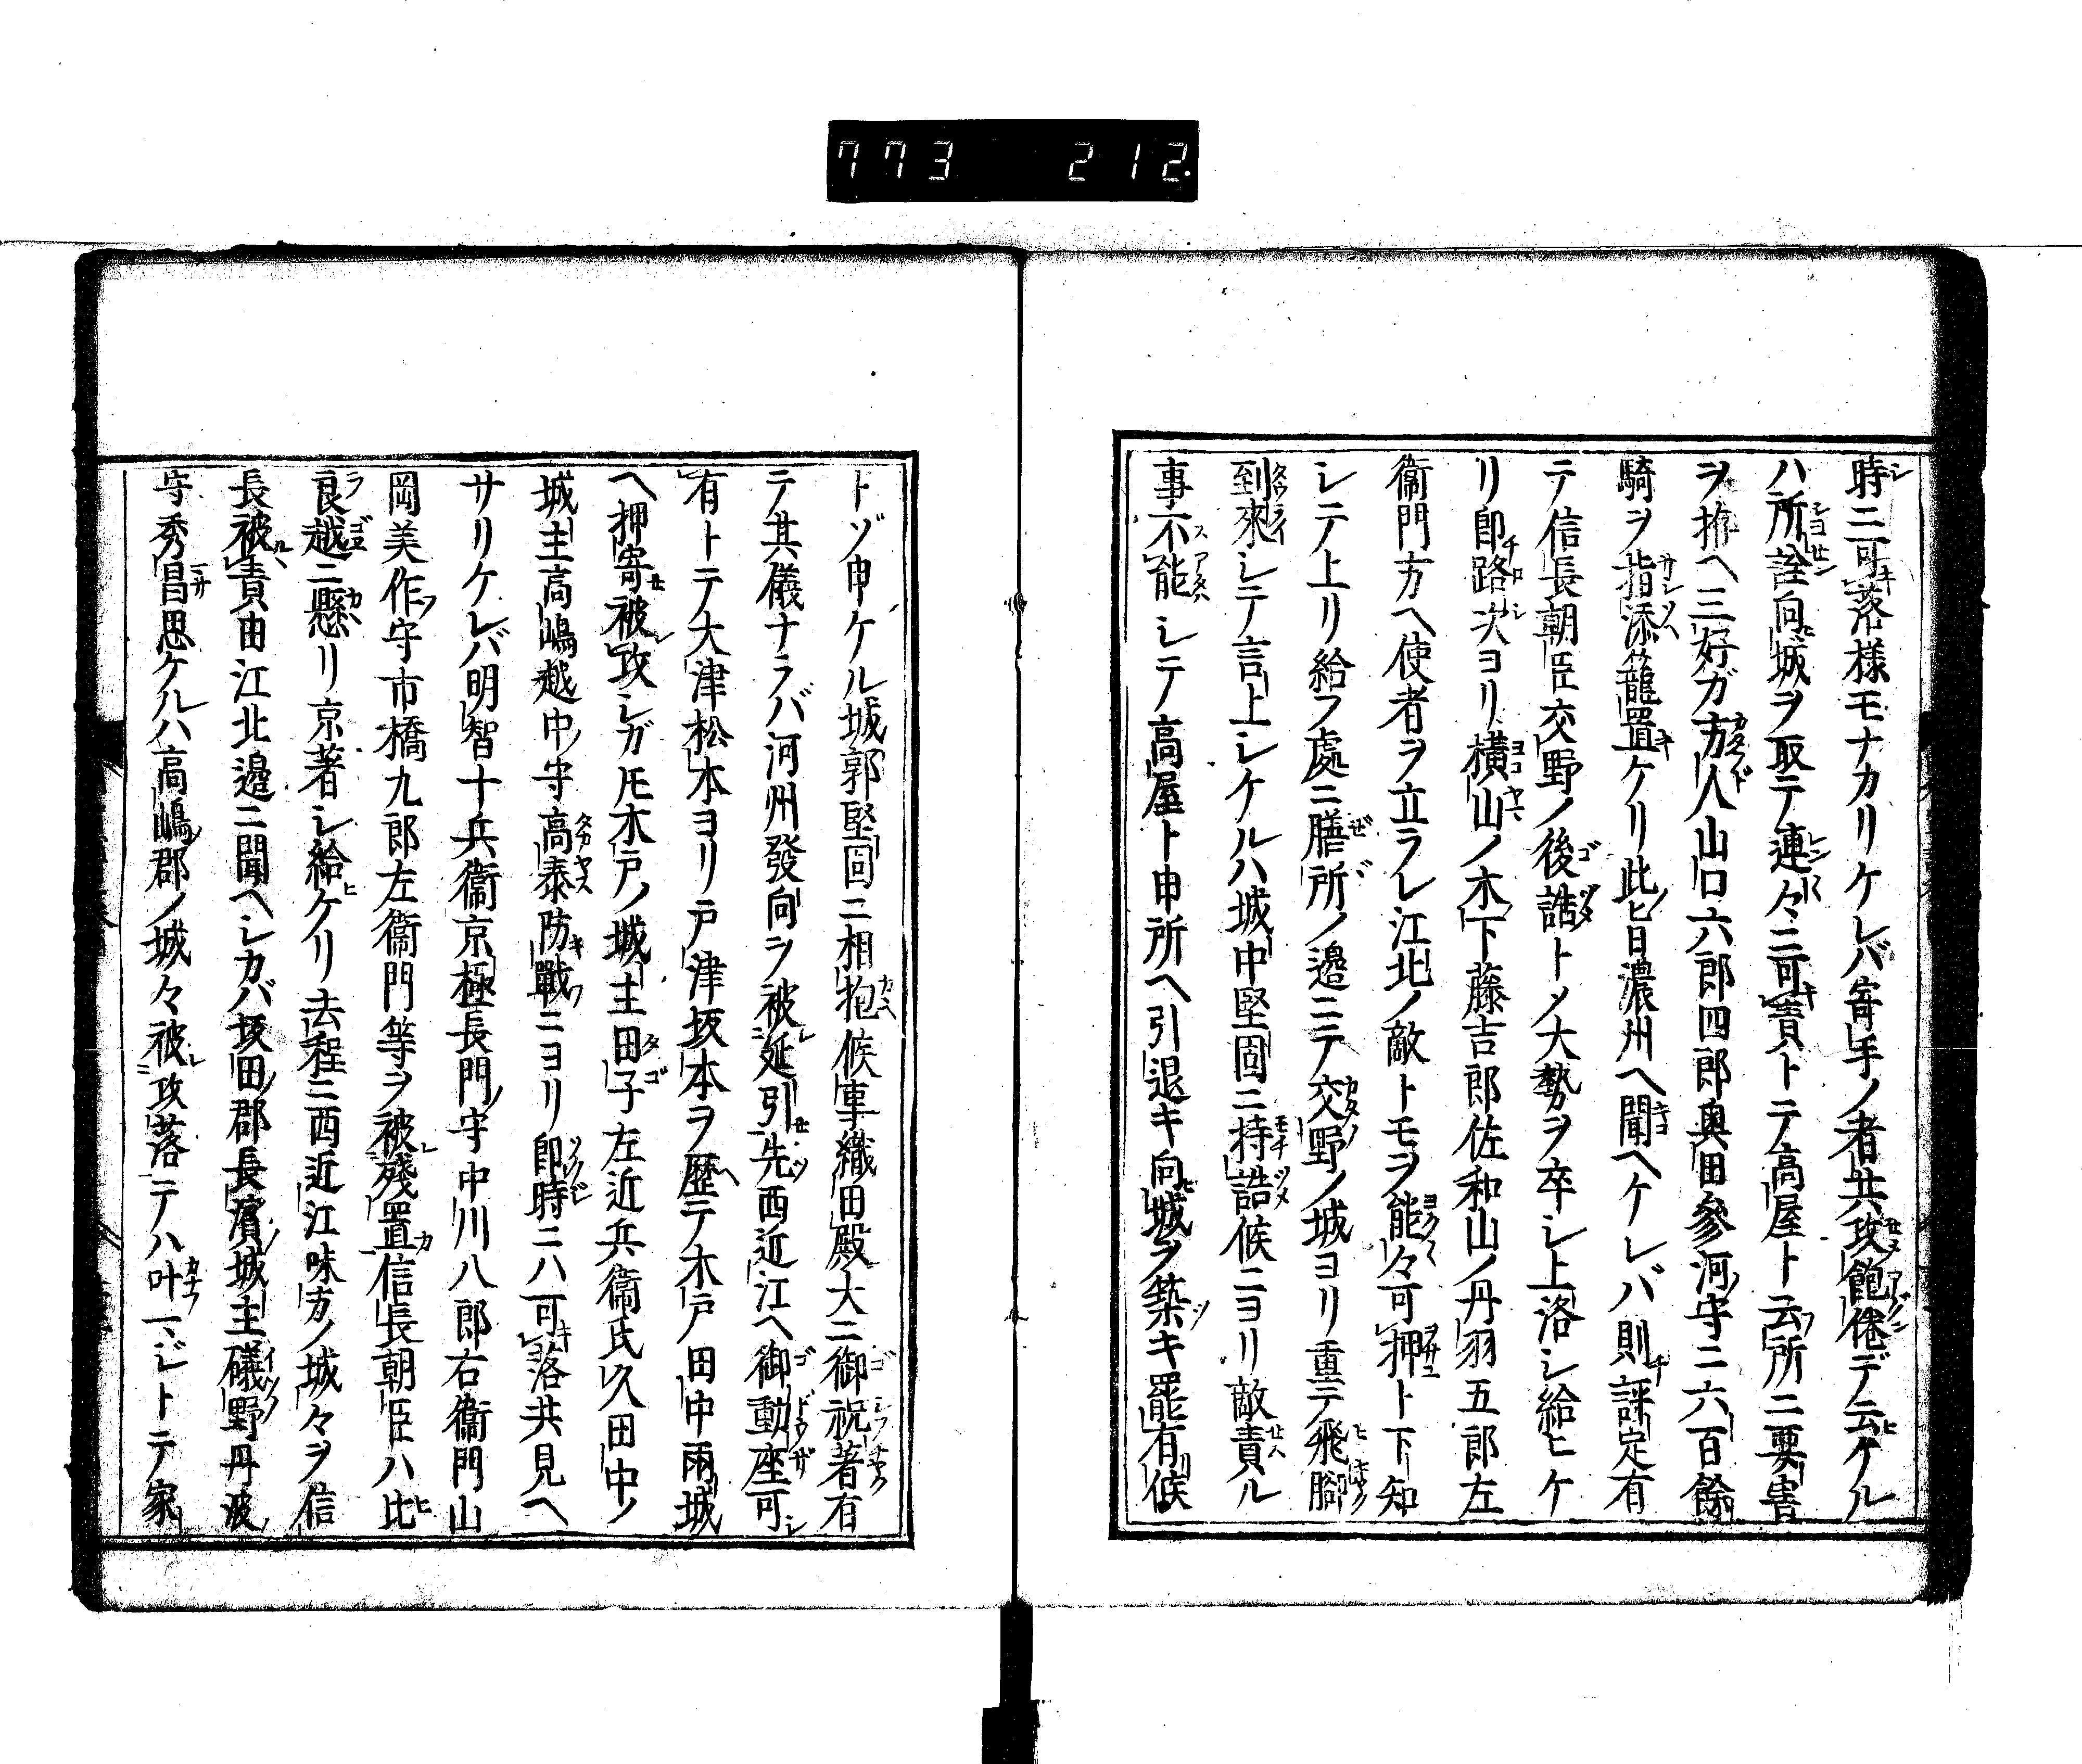 773 212
時ニ可落様モナカリケレバ寄手ノ者共攻飽倦デ云ケル
ハ所詮向城ヲ取テ連々ニ可責トテ高屋ト云所ニ要害
ヲ拵ヘ三好ガ方人山口六郎四郎奥田參河守ニ六百餘
騎ヲ指添籠置ケリ此旨濃州ヘ聞ヘケレバ則評定有
テ信長朝臣交野ノ後詰トメ大勢ヲ卒シ上洛シ給ヒケ
リ即路次ヨリ横山ノ木下藤吉郎佐和山ノ丹羽五郎左
衞門方ヘ使者ヲ立ラレ江北ノ敵トモヲ能々可押ト下知
シテ上リ給フ處ニ膳所ノ邉ニテ交野ノ城ヨリ重テ飛脚
到來シテ言上シケルハ城中堅固ニ持詰候ニヨリ敵責ル
事不能シテ高屋ト申所ヘ引退キ向城ヲ築キ罷有候
トゾ申ケル城郭堅固ニ相抱候事織田殿大ニ御祝著有
テ其儀ナラバ河州發向ヲ被延引先西近江ヘ御動座可
有トテ大津松本ヨリ戸津坂本ヲ歴テ木戸田中兩城
ヘ押寄被攻シガ厇木戸ノ城主田子左近兵衞氏久田中ノ
城主高嶋越中守高泰防戰ニヨリ即時ニハ可落共見ヘ
サリケレバ明智十兵衞京極長門守中川八郎右衞門山
岡美作守市橋九郎左衞門等ヲ被殘置信長朝臣ハ比
良越ニ懸リ京著シ給ケリ去程ニ西近江味方ノ城々ヲ信
長被責由江北邉ニ聞ヘシカバ坂田郡長濱城主礒野丹波
守秀昌思ケルハ高嶋郡ノ城々被攻落テハ叶マジトテ家